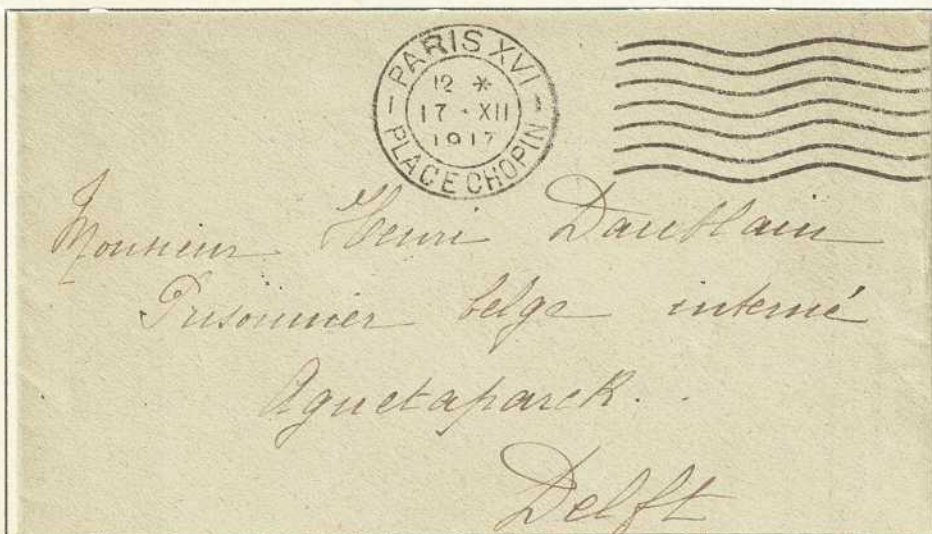 PARIS XVI
12 *
17 - XII
1917
PLACE CHOPIN
Monsieur Henri Daublain
Prisonnier belge interné
Agnetaparck.
Delft